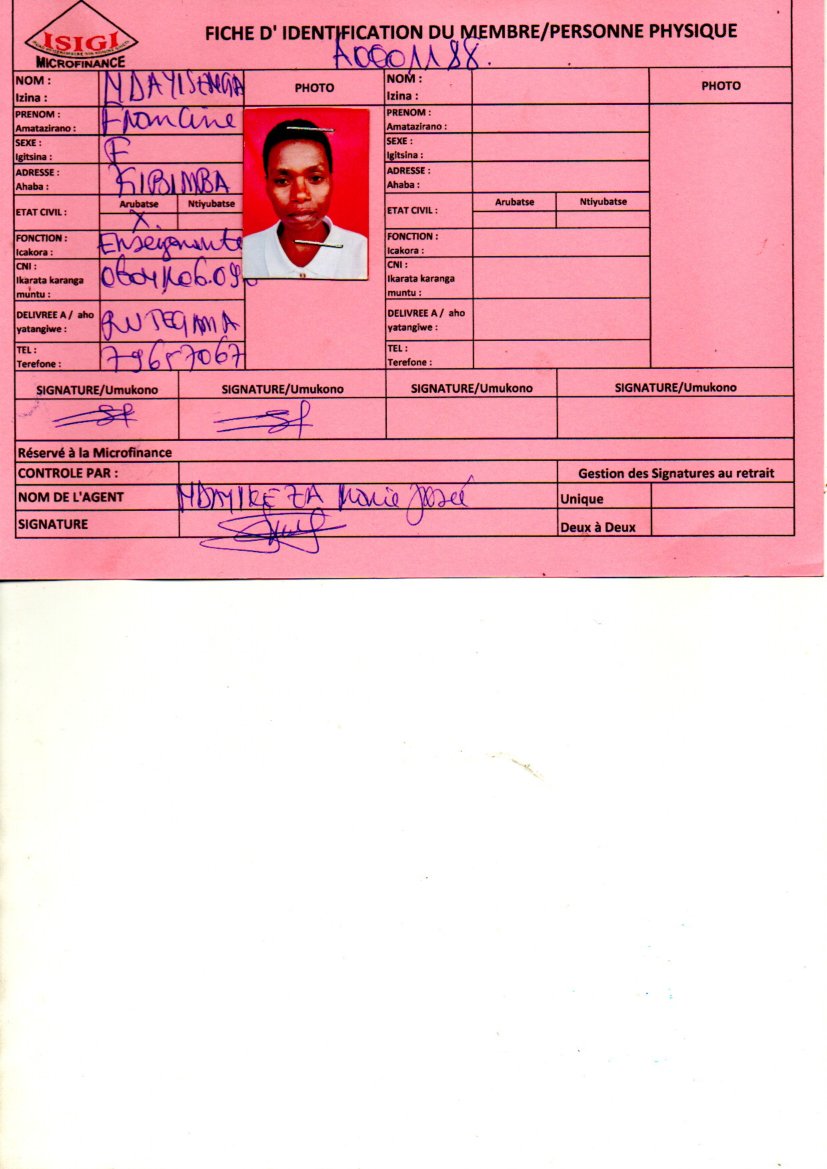 ISIGI
MICROFINANCE
FICHE D' IDENTIFICATION DU MEMBRE/PERSONNE PHYSIQUE
A0001188.
NOM :
Izina :
NDAYISENGA
PHOTO
PRENOM :
Amatazirano :
Francine
SEXE :
Igitsina :
F
ADRESSE :
Ahaba :
KIBIMBA
ETAT CIVIL :
Arubatse
Ntiyubatse
X.
FONCTION :
Icakora :
Enseignante
CNI :
Ikarata karanga
muntu :
DELIVREE A / aho
yatangiwe :
RUTEGAMA
TEL :
Terefone :
79657067
NOM :
Izina :
PHOTO
PRENOM :
Amatazirano :
SEXE :
Igitsina :
ADRESSE :
Ahaba :
ETAT CIVIL :
Arubatse
Ntiyubatse
FONCTION :
Icakora :
CNI :
Ikarata karanga
muntu :
DELIVREE A / aho
yatangiwe :
TEL :
Terefone :
SIGNATURE/Umukono
SIGNATURE/Umukono
SIGNATURE/Umukono
SIGNATURE/Umukono
Réservé à la Microfinance
CONTROLE PAR :
Gestion des Signatures au retrait
NOM DE L'AGENT
NDAYIKEZA Marie Josée
Unique
SIGNATURE
Deux à Deux